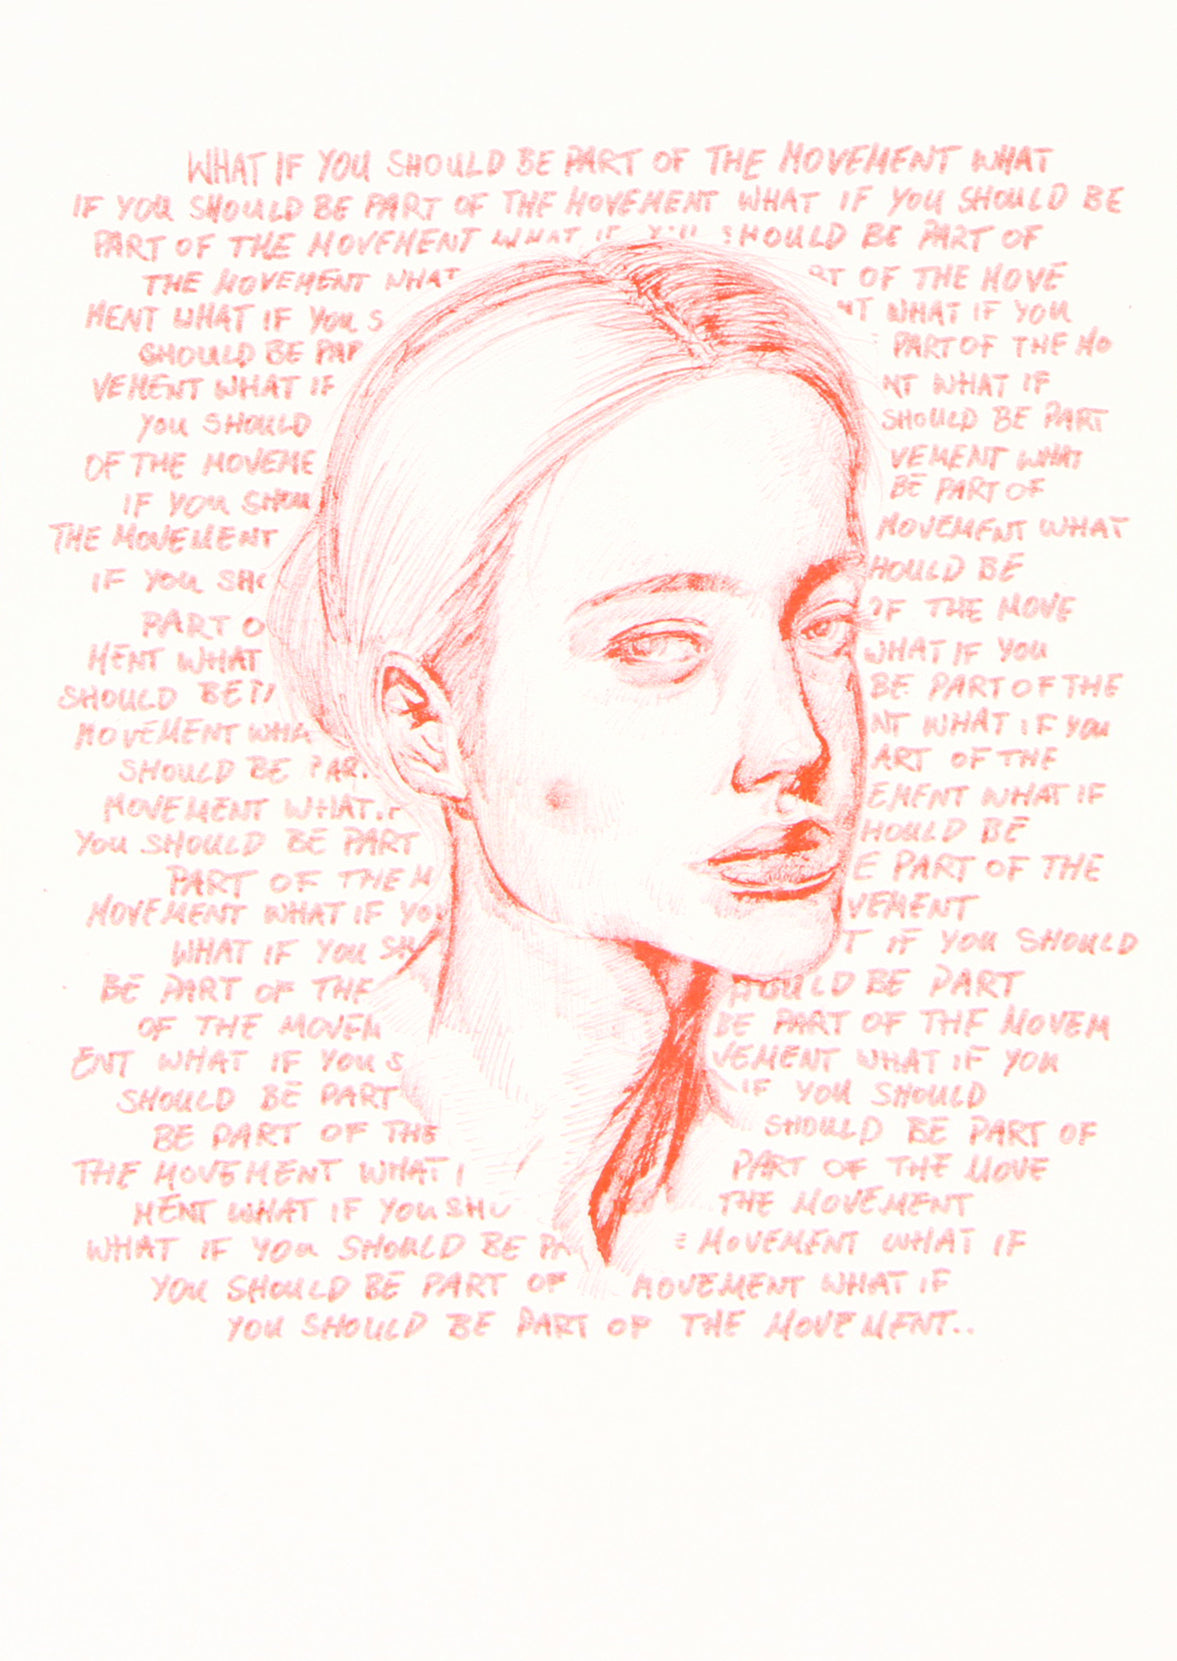 WHAT IF YOU SHOULD BE PART OF THE MOVEMENT WHAT
IF YOU SHOULD BE PART OF THE MOVEMENT WHAT IF YOU SHOULD BE
PART OF THE MOVEMENT WHAT IF YOU SHOULD BE PART OF
THE MOVEMENT WHAT RT OF THE MOVE
MENT WHAT IF YOU S NT WHAT IF YOU
SHOULD BE PAR PART OF THE MO
VEMENT WHAT IF NT WHAT IF
YOU SHOULD SHOULD BE PART
OF THE MOVEME VEMENT WHAT
IF YOU SHOU BE PART OF
THE MOVEMENT MOVEMENT WHAT
IF YOU SHO HOULD BE
PART O OF THE MOVE
MENT WHAT WHAT IF YOU
SHOULD BE BE PART OF THE
MOVEMENT WHA NT WHAT IF YOU
SHOULD BE PAR ART OF THE
MOVEMENT WHAT IF EMENT WHAT IF
YOU SHOULD BE PART HOULD BE
PART OF THE M E PART OF THE
MOVEMENT WHAT IF YOU VEMENT
WHAT IF YOU SH T IF YOU SHOULD
BE PART OF THE HOULD BE PART
OF THE MOVEM BE PART OF THE MOVEM
ENT WHAT IF YOU S VEMENT WHAT IF YOU
SHOULD BE PART IF YOU SHOULD
BE PART OF THE SHOULD BE PART OF
THE MOVEMENT WHAT I PART OF THE MOVE
MENT WHAT IF YOU SHU THE MOVEMENT
WHAT IF YOU SHOULD BE PA E MOVEMENT WHAT IF
YOU SHOULD BE PART OF MOVEMENT WHAT IF
YOU SHOULD BE PART OF THE MOVEMENT..